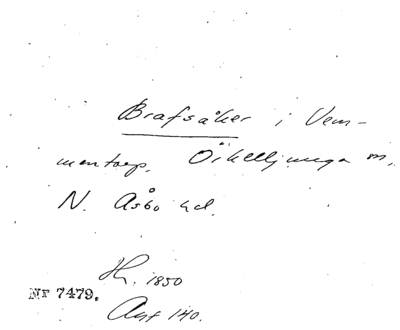 Brafsåker i Vem-
mentorp, Örkelljunga sn,
N. Åsbo hd.
1850
Nr 7479.
140.